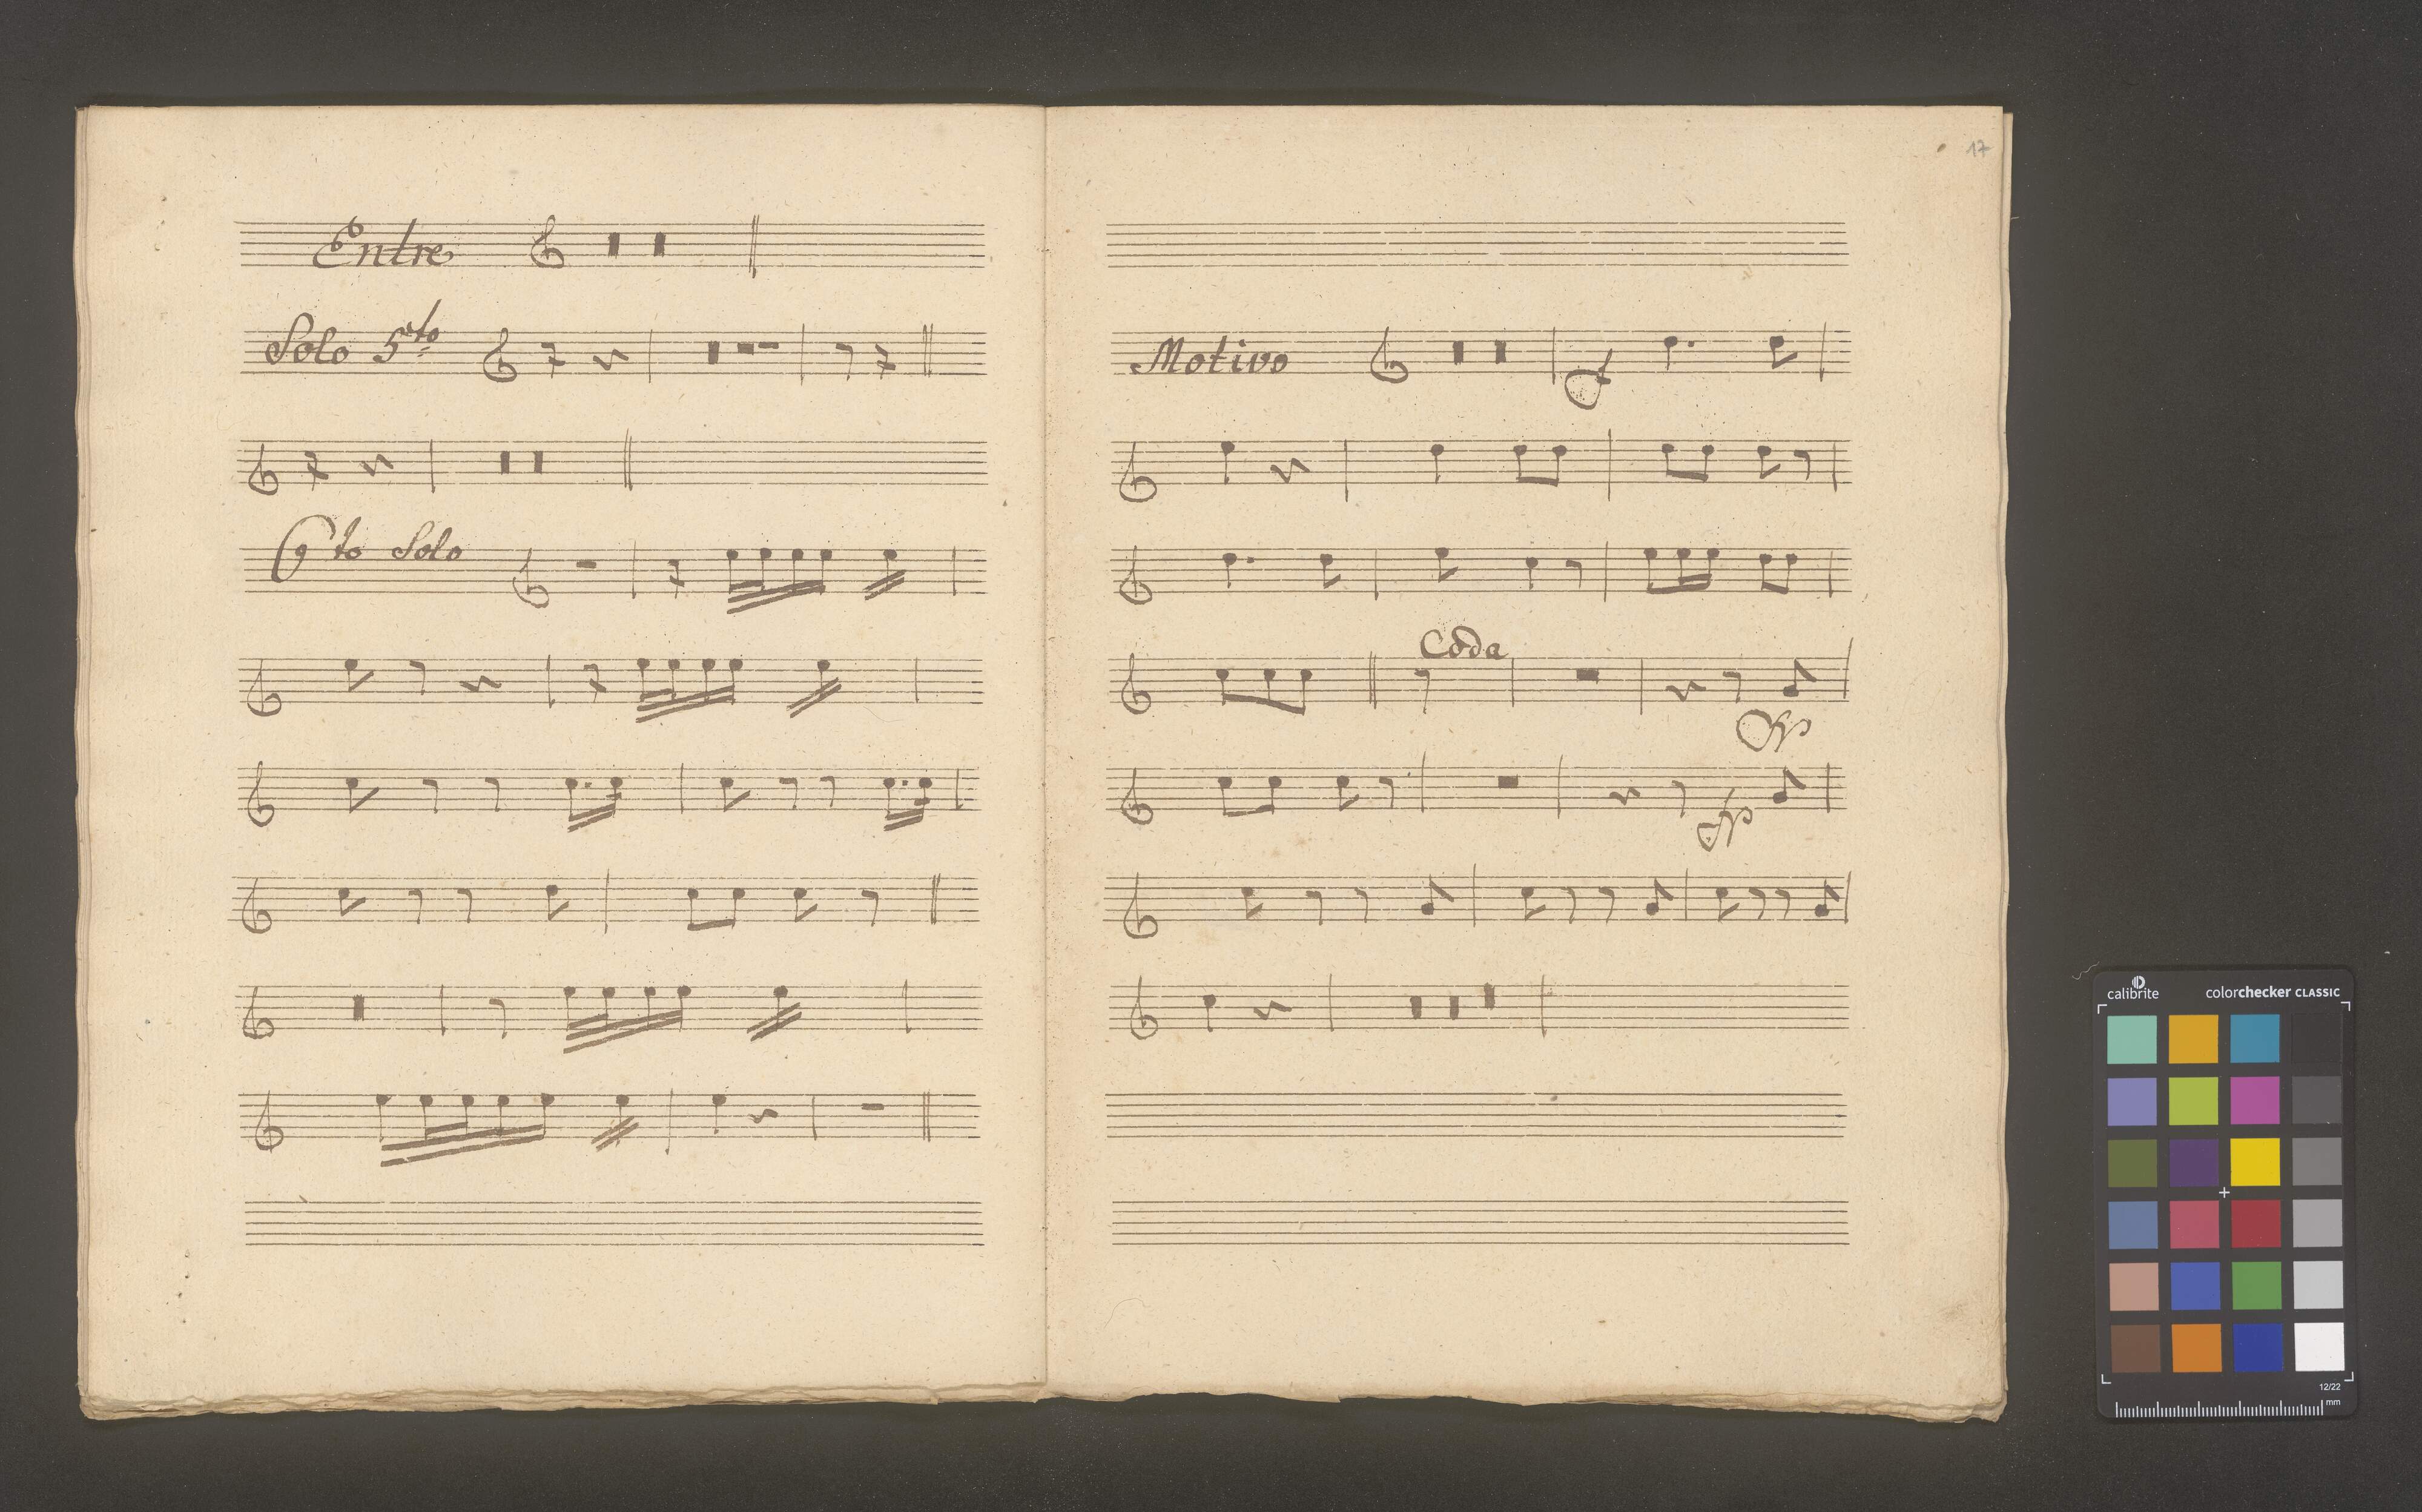 Entre
Solo 5to
6to Solo
17
Motivo
f
Coda
fp
fp
calibrite colorchecker CLASSIC
12/22
mm